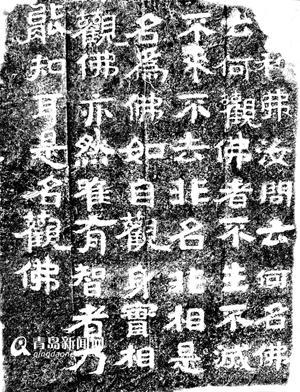 利弗汝問云何名佛
云何觀佛者不生不滅
不来不去非名非相是
名為佛如自觀身實相
觀佛亦然唯有智者乃
能知耳是名觀佛
青岛新闻网